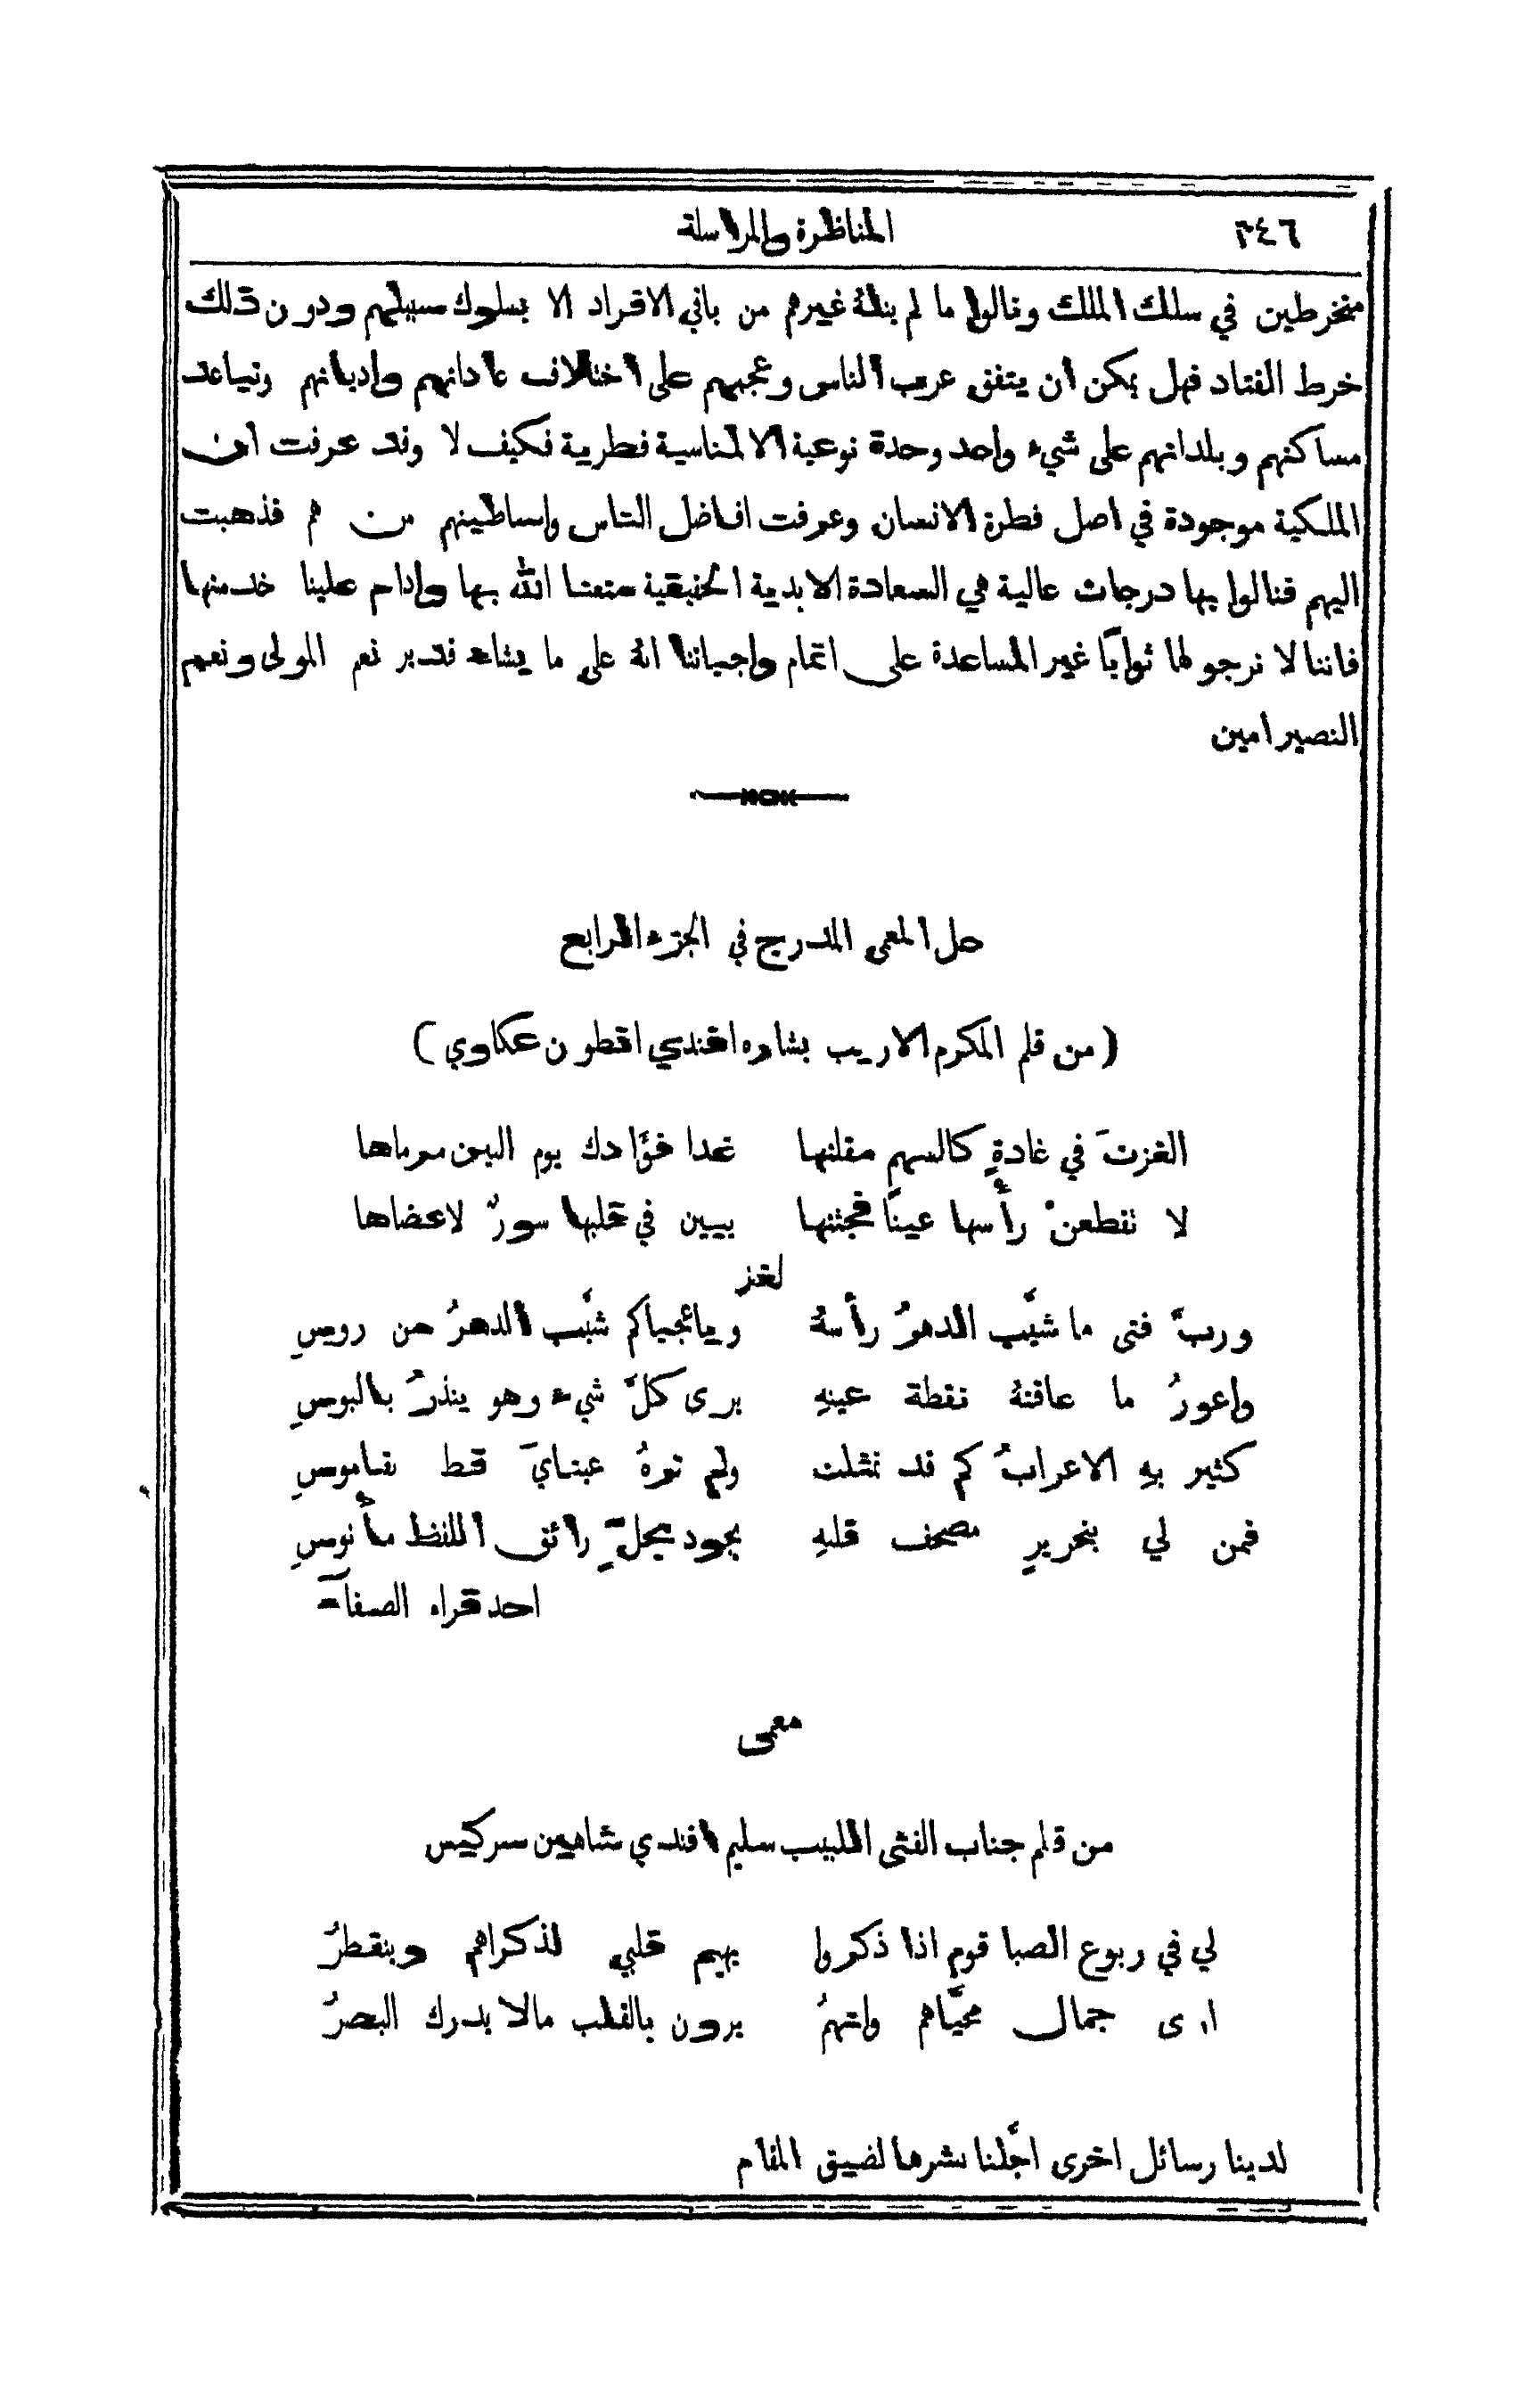 ٣٤٦ المناظرة والمراسلة
منخرطين في سلك الملك ونالوا ما لم ينلهُ غيرهم من باقي الافراد الا بسلوك سبيلهم ودون ذلك
خرط القتاد فهل يمكن ان يتفق عرب الناس وعجمهم على اختلاف عاداتهم واديانهم وتباعد
مساكنهم وبلدانهم على شيء واحد وحدة نوعية الا لمناسبة فطرية فكيف لا وقد عرفت ان
الملكية موجودة في اصل فطرة الانسان وعرفت افاضل الناس واساطينهم من هم فذهبت
اليهم فنالوا بها درجات عالية هي السعادة الابدية الحقيقية متعنا الله بها وادام علينا خدمتها
فاننا لا نرجو لها ثوابًا غير المساعدة على اتمام واجباتنا انهُ على ما يشاء قدير نعم المولى ونعم
النصير امين
حل المعمى المدرج في الجزء الرابع
(من قلم المكرم الاريب بشاره افندي انطون عكاوي)
الغزتَ في غادةٍ كالسهم مقلتها غدا فؤادك يوم البين مرماها
لا تقطعنْ رأسها عينًا فجثتها يبين في قلبها سورٌ لاعضاها
لغز
وربَّ فتى ما شيَّب الدهرُ رأسهُ ويا عجباكم شيَّب الدهرُ من روسِ
واعورُ ما عاقتهُ نقطة عينهِ يرى كلَّ شيء وهو ينذرُ بالبوسِ
كثير بهِ الاعرابُ كم قد تمثلت ولم ترهُ عينايَ قط بقاموسِ
فمن لي بنحريرٍ مصحف قلبهِ يجود بحلٍّ رائق اللفظ مأنوسِ
احد قراء الصفاء
معمى
من قلم جناب الفتى اللبيب سليم افندي شاهين سركيس
لي في ربوع الصبا قوم اذا ذكروا يهيم قلبي لذكراهم وينفطرُ
ارى جمال محيَّاهم وانهمُ يرون بالقلب مالا يدرك البصرُ
لدينا رسائل اخرى اجَّلنا نشرها لضيق المقام